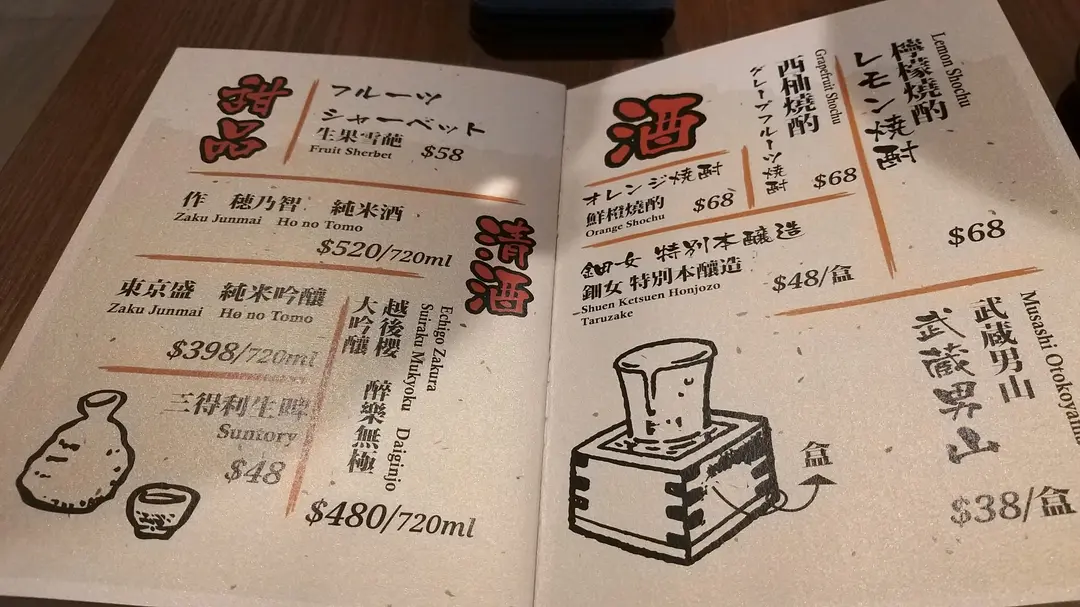 甜品
フルーツ
シャーベット
生果雪葩
Fruit Sherbet $58
清酒
作 穂乃智 純米酒
Zaku Junmai Ho no Tomo
$520/720ml
東京盛 純米吟釀
Zaku Junmai Ho no Tomo
$398/720ml
三得利生啤
Suntory
$48
Echigo Zakura
Suiraku Mukyoku Daiginjo
越後櫻 醉樂無極
大吟釀
$480/720ml
酒
Lemon Shochu
檸檬燒酌
レモン焼酎
$68
Grapefruit Shochu
西柚燒酌
グレープフルーツ焼酎
$68
オレンジ焼酎
鮮橙燒酌
Orange Shochu
$68
鈿女 特別本醸造
鈿女 特別本釀造
Shuen Ketsuen Honjozo
Taruzake
$48/盒
Musashi Otokoyama
武蔵男山
武蔵男山
$38/盒
盒